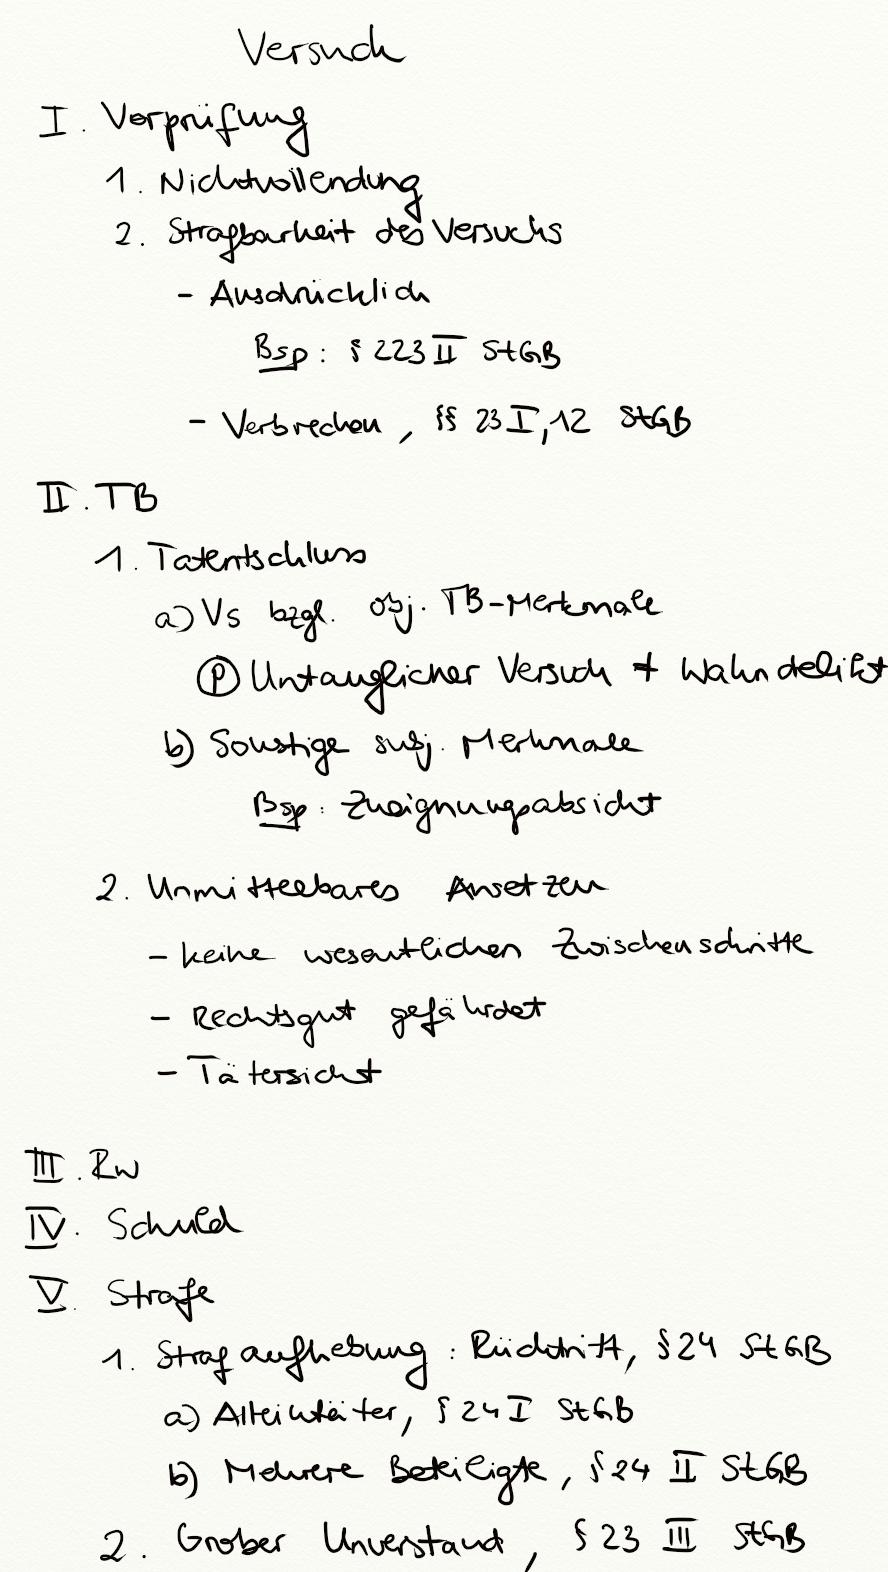 Versuch
I. Vorprüfung
1. Nichtvollendung
2. Strafbarkeit des Versuchs
- Ausdrücklich
Bsp: § 223 II StGB
- Verbrechen, §§ 23 I, 12 StGB
II. TB
1. Tatentschluss
a) Vs bzgl. obj. TB-Merkmale
(P) Untauglicher Versuch ≠ Wahndelikt
b) Sonstige subj. Merkmale
Bsp: Zueignungsabsicht
2. Unmittelbares Ansetzen
- keine wesentlichen Zwischenschritte
- Rechtsgut gefährdet
- Tätersicht
III. Rw
IV. Schuld
V. Strafe
1. Strafaufhebung: Rücktritt, § 24 StGB
a) Alleintäter, § 24 I StGB
b) Mehrere Beteiligte, § 24 II StGB
2. Grober Unverstand, § 23 III StGB